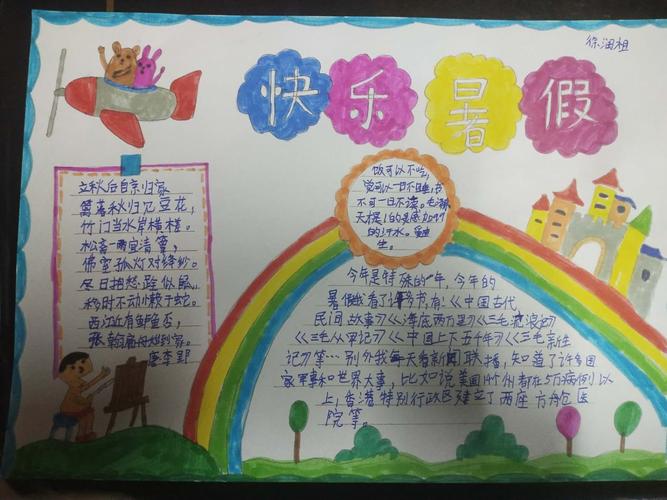 徐润祖
快乐暑假
立秋后自京归家
篱落秋归见豆花,
竹门当水岸横槎。
松斋一雨宜清簟,
佛室孤灯对绛纱。
尽日抱愁跧似鼠,
移时不动懒于蛇。
西江近有鲈鱼否,
张翰扁舟始到家。
唐李郢
饭可以不吃,
觉可以一日不睡,书
不可一日不读。毛泽
天才是1的灵感加99
的汗水。爱迪
生。
今年是特殊的一年,今年的
暑假我看了许多书有!《中国古代
民间故事》《海底两万里》《三毛流浪记》
《三毛从军记》《中国上下五千年》《三毛新生
记》等…别外我每天看新闻联播,知道了许多国
家军事和世界大事,比如说美国19个州都在5万病例以
上,香港特别行政区建立了两座方舱医
院等。